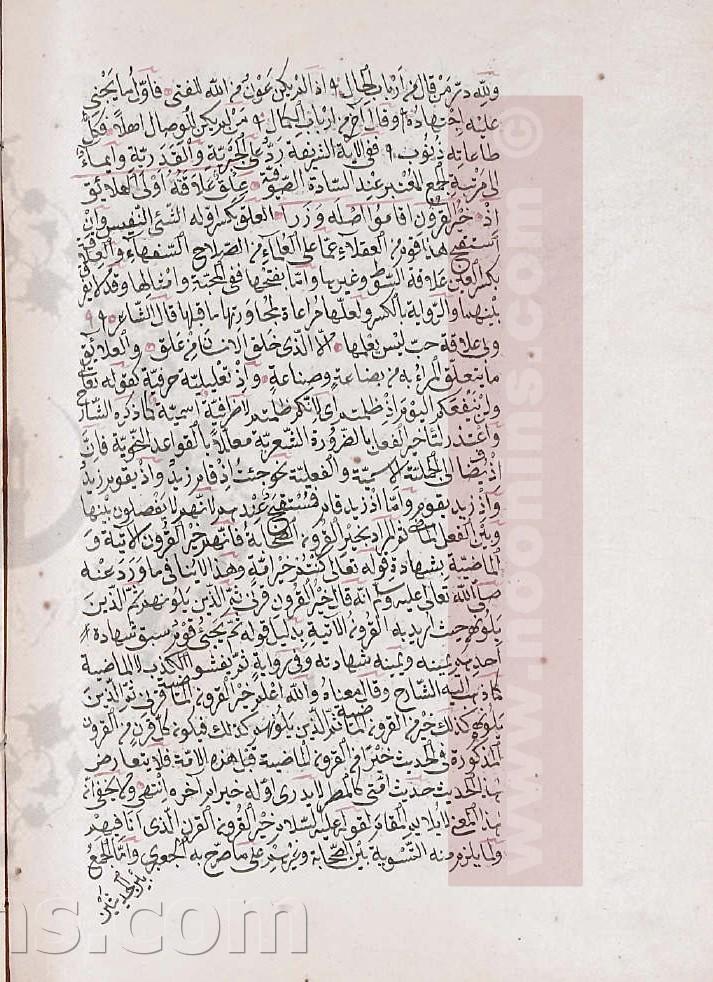 ولله در من قال من ارباب الحال ٩ اذا لم يكن عون من الله للفتى فاول ما يجني
عليه اجتهاده ٩ وقال آخر من ارباب الجمال ٩ من لم يكن للوصال اهلا فكل
طاعاته ذنوب ٩ ففي الآية الشريفة رد على الجبرية والقدرية وايماء
الى مرتبة الجمع المعتبر عند السادة الصوفية علق علاقة اولى العلائق
اذ خير القرون اقاموا اصله وزرا العلق بكسر اوله الشئ النفيس وان
استقبح هذا قوم من العقلاء عما على العلماء من الصلاح السفهاء والعلاقة
بكسر العين علاقة السوط وغيرها واما بفتحها ففي المحبة وامثالها وقد لا يفرق
بينهما والرواية بالكسر ولعلها مراعاة لمجاورتها ما قبلها قال الشاعر ٩
ولى علاقة حب ليس يعلمها الا الذى خلق الانسان من علق والعلائق
ما يتعلق المرء به من بضاعة وصناعة واذ تعليلية حرفية كقوله تعالى
ولن ينفعكم اليوم اذ ظلمتم اى لانكم ظلمتم لا ظرفية اسمية كما ذكره الشارح
واعتذر لتأخير الفعل بالضرورة الشعرية معللا بالقواعد النحوية فان
اذ يضاف الى الجملة الاسمية والفعلية نحو جئت اذ قام زيد واذ يقوم زيد
واذ زيد يقوم واما اذ زيد قام فمستقبح عندهم لانهم لا يفصلون بينها
وبين الفعل الماضى ثم المراد بخير القرون الصحابة فانهم خير القرون الآتية و
الماضية بشهادة قوله تعالى كنتم خير امة وهذا لا ينافى ما ورد عنه
صلى الله تعالى عليه وسلم انه قال خير القرون قرنى ثم الذين يلونهم ثم الذين
يلونهم حيث اريد به القرون الآتية بدليل قوله ثم يجئ قوم يسبق شهادة
احدهم يمينه ويمينه شهادته وفى رواية ثم يفشو الكذب لا الماضية
كما ذهب اليه الشارح وقال معناه والله اعلم خير القرون الماضية قرنى ثم الذين
يلونهم كذلك خير من القرون الماضية ثم الذين يلونهم كذلك فيكون كل قرن من القرون
المذكورة فى الحديث خيرا من القرون الماضية قبل هذه الامة فلا يتعارض
بهذا الحديث حديث امتى كالمطر لا يدرى اوله خير ام آخره انتهى ولا يخفى ان
هذا المعنى لا يلايم المقام لقوله عليه السلام خير القرون القرن الذى انا فيهم
ولما يلزم منه التسوية بين الصحابة وغيرهم على ما صرح به الجعبرى واما الجمع
بين الحديثين
www.noonins.com ©
ns.com